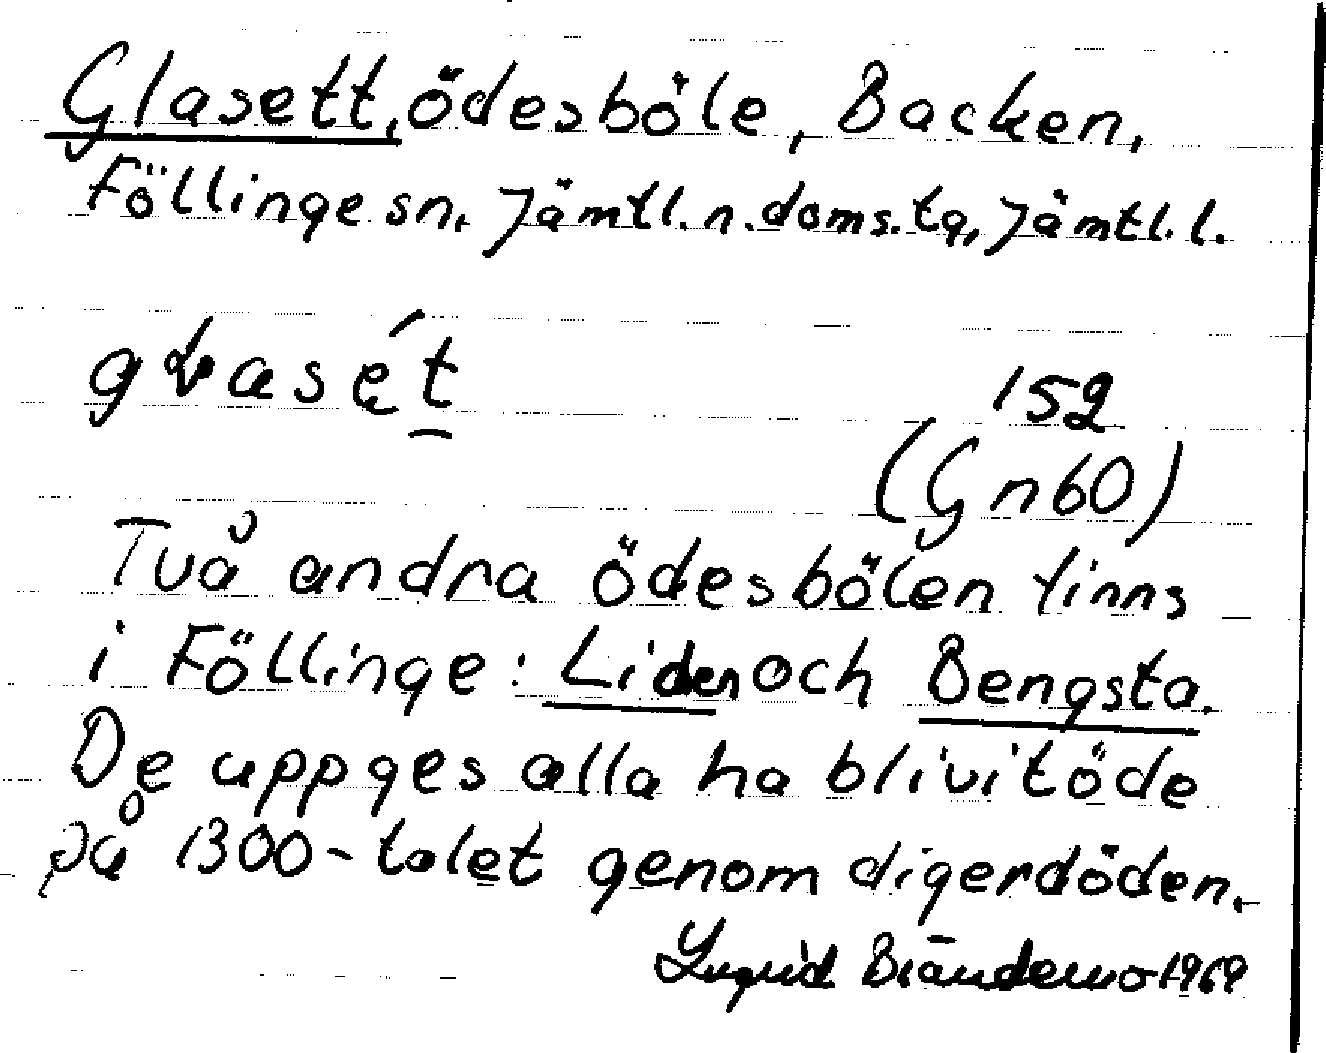 Glasett, ödesböle, Backen,
Föllinge sn. Jämtl. n. doms. tg, Jämtl. l.
152
(Gn60)
Två andra ödesbölen finns
i Föllinge: Liden och Bengsta.
De uppges alla ha blivit öde
på 1300-talet genom digerdöden.
Ingrid Brändemo 1969